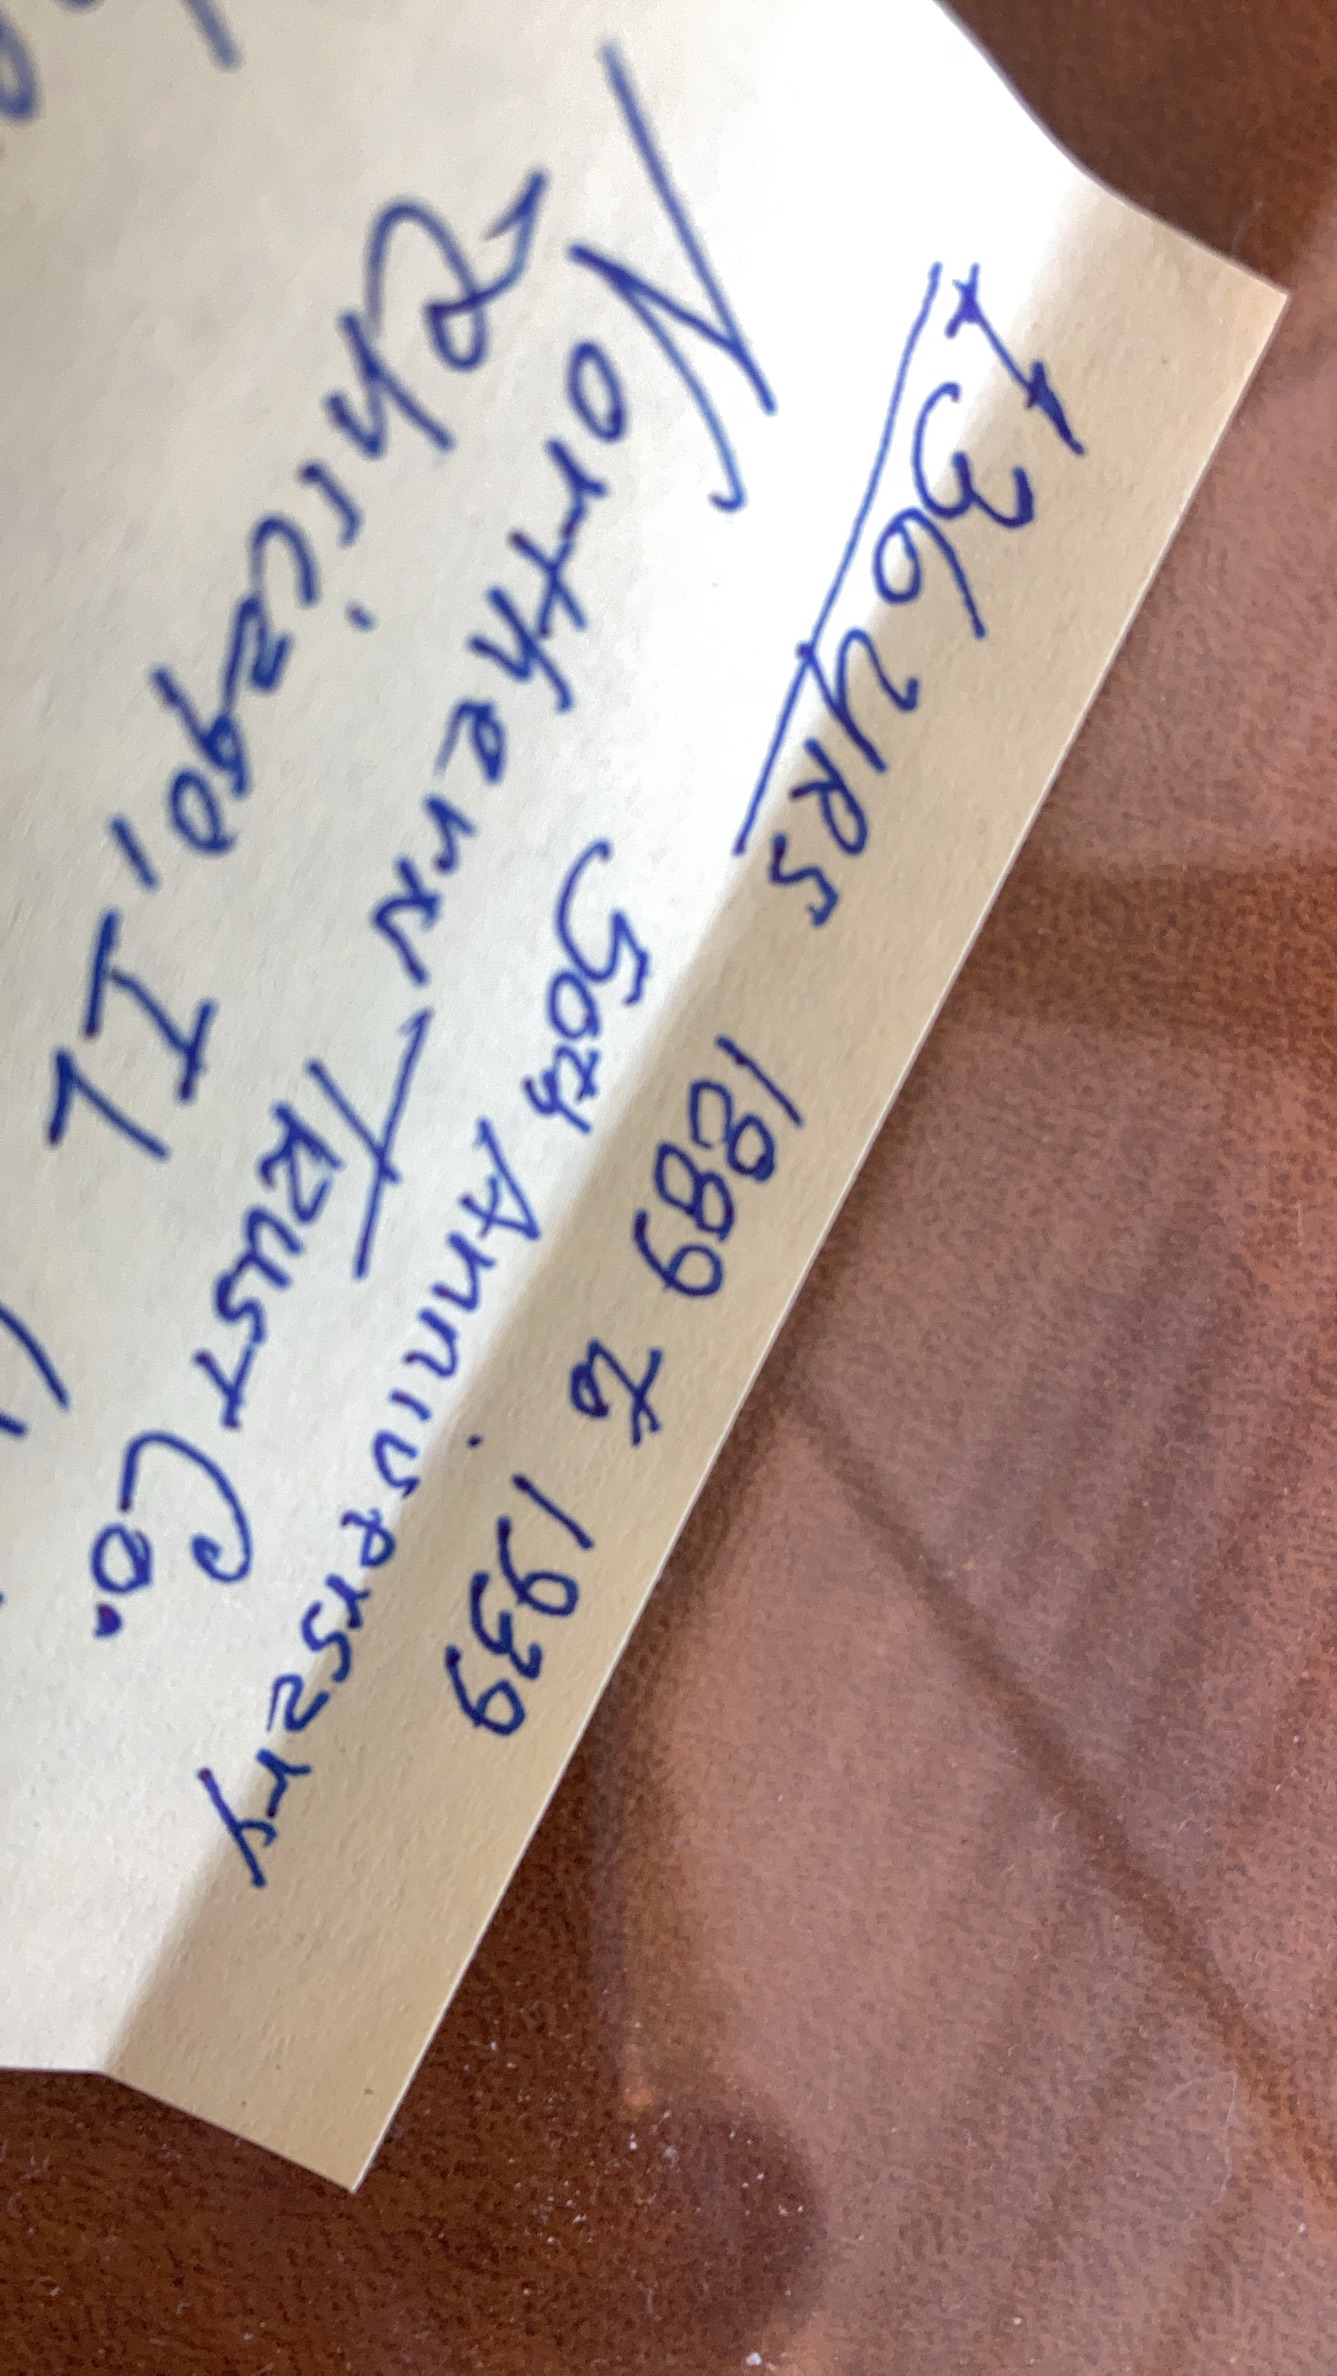 + 36 YRS 1889 to 1939
50th Anniversary
Northern Trust Co.
Chicago, IL